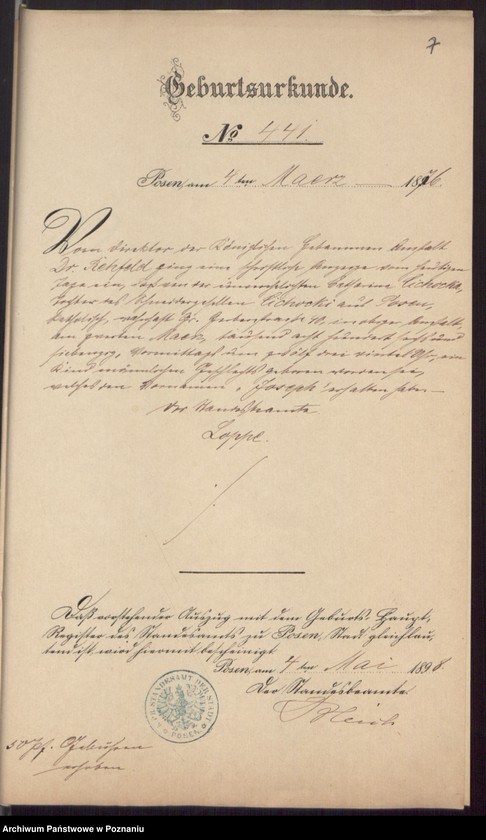 7
Geburtsurkunde.
No 441.
Posen, am 4 ten Maerz 1876.
Vom Direktor der Königlichen Hebammen Anstalt
Dr. Rehfeld ging eine schriftliche Anzeige vom heutigen
Tage ein, daß von der unverehelichten Catharina Cichocka,
Tochter des Schneidergesellen Cichocki aus Posen,
katholisch, wohnhaft Gr. Gerberstraße in obiger Anstalt,
am zweiten Maerz, tausend acht hundert sechs und
siebenzig, Vormittags um zwölf drei viertel Uhr, ein
Kind männlichen Geschlechts geboren worden sei,
welches den Vornamen „Joseph" erhalten habe. —
Der Standesbeamte
Loppe.
Daß vorstehender Auszug mit dem Geburts-Haupt-
Register des Standesamts zu Posen, Stadt gleichlau-
tend ist, wird hiermit bescheinigt.
Posen, am 4 ten Mai 1898.
Der Standesbeamte
STANDESAMT DER STADT
POSEN
50 Pf. Gebühren
erhoben
Archiwum Państwowe w Poznaniu